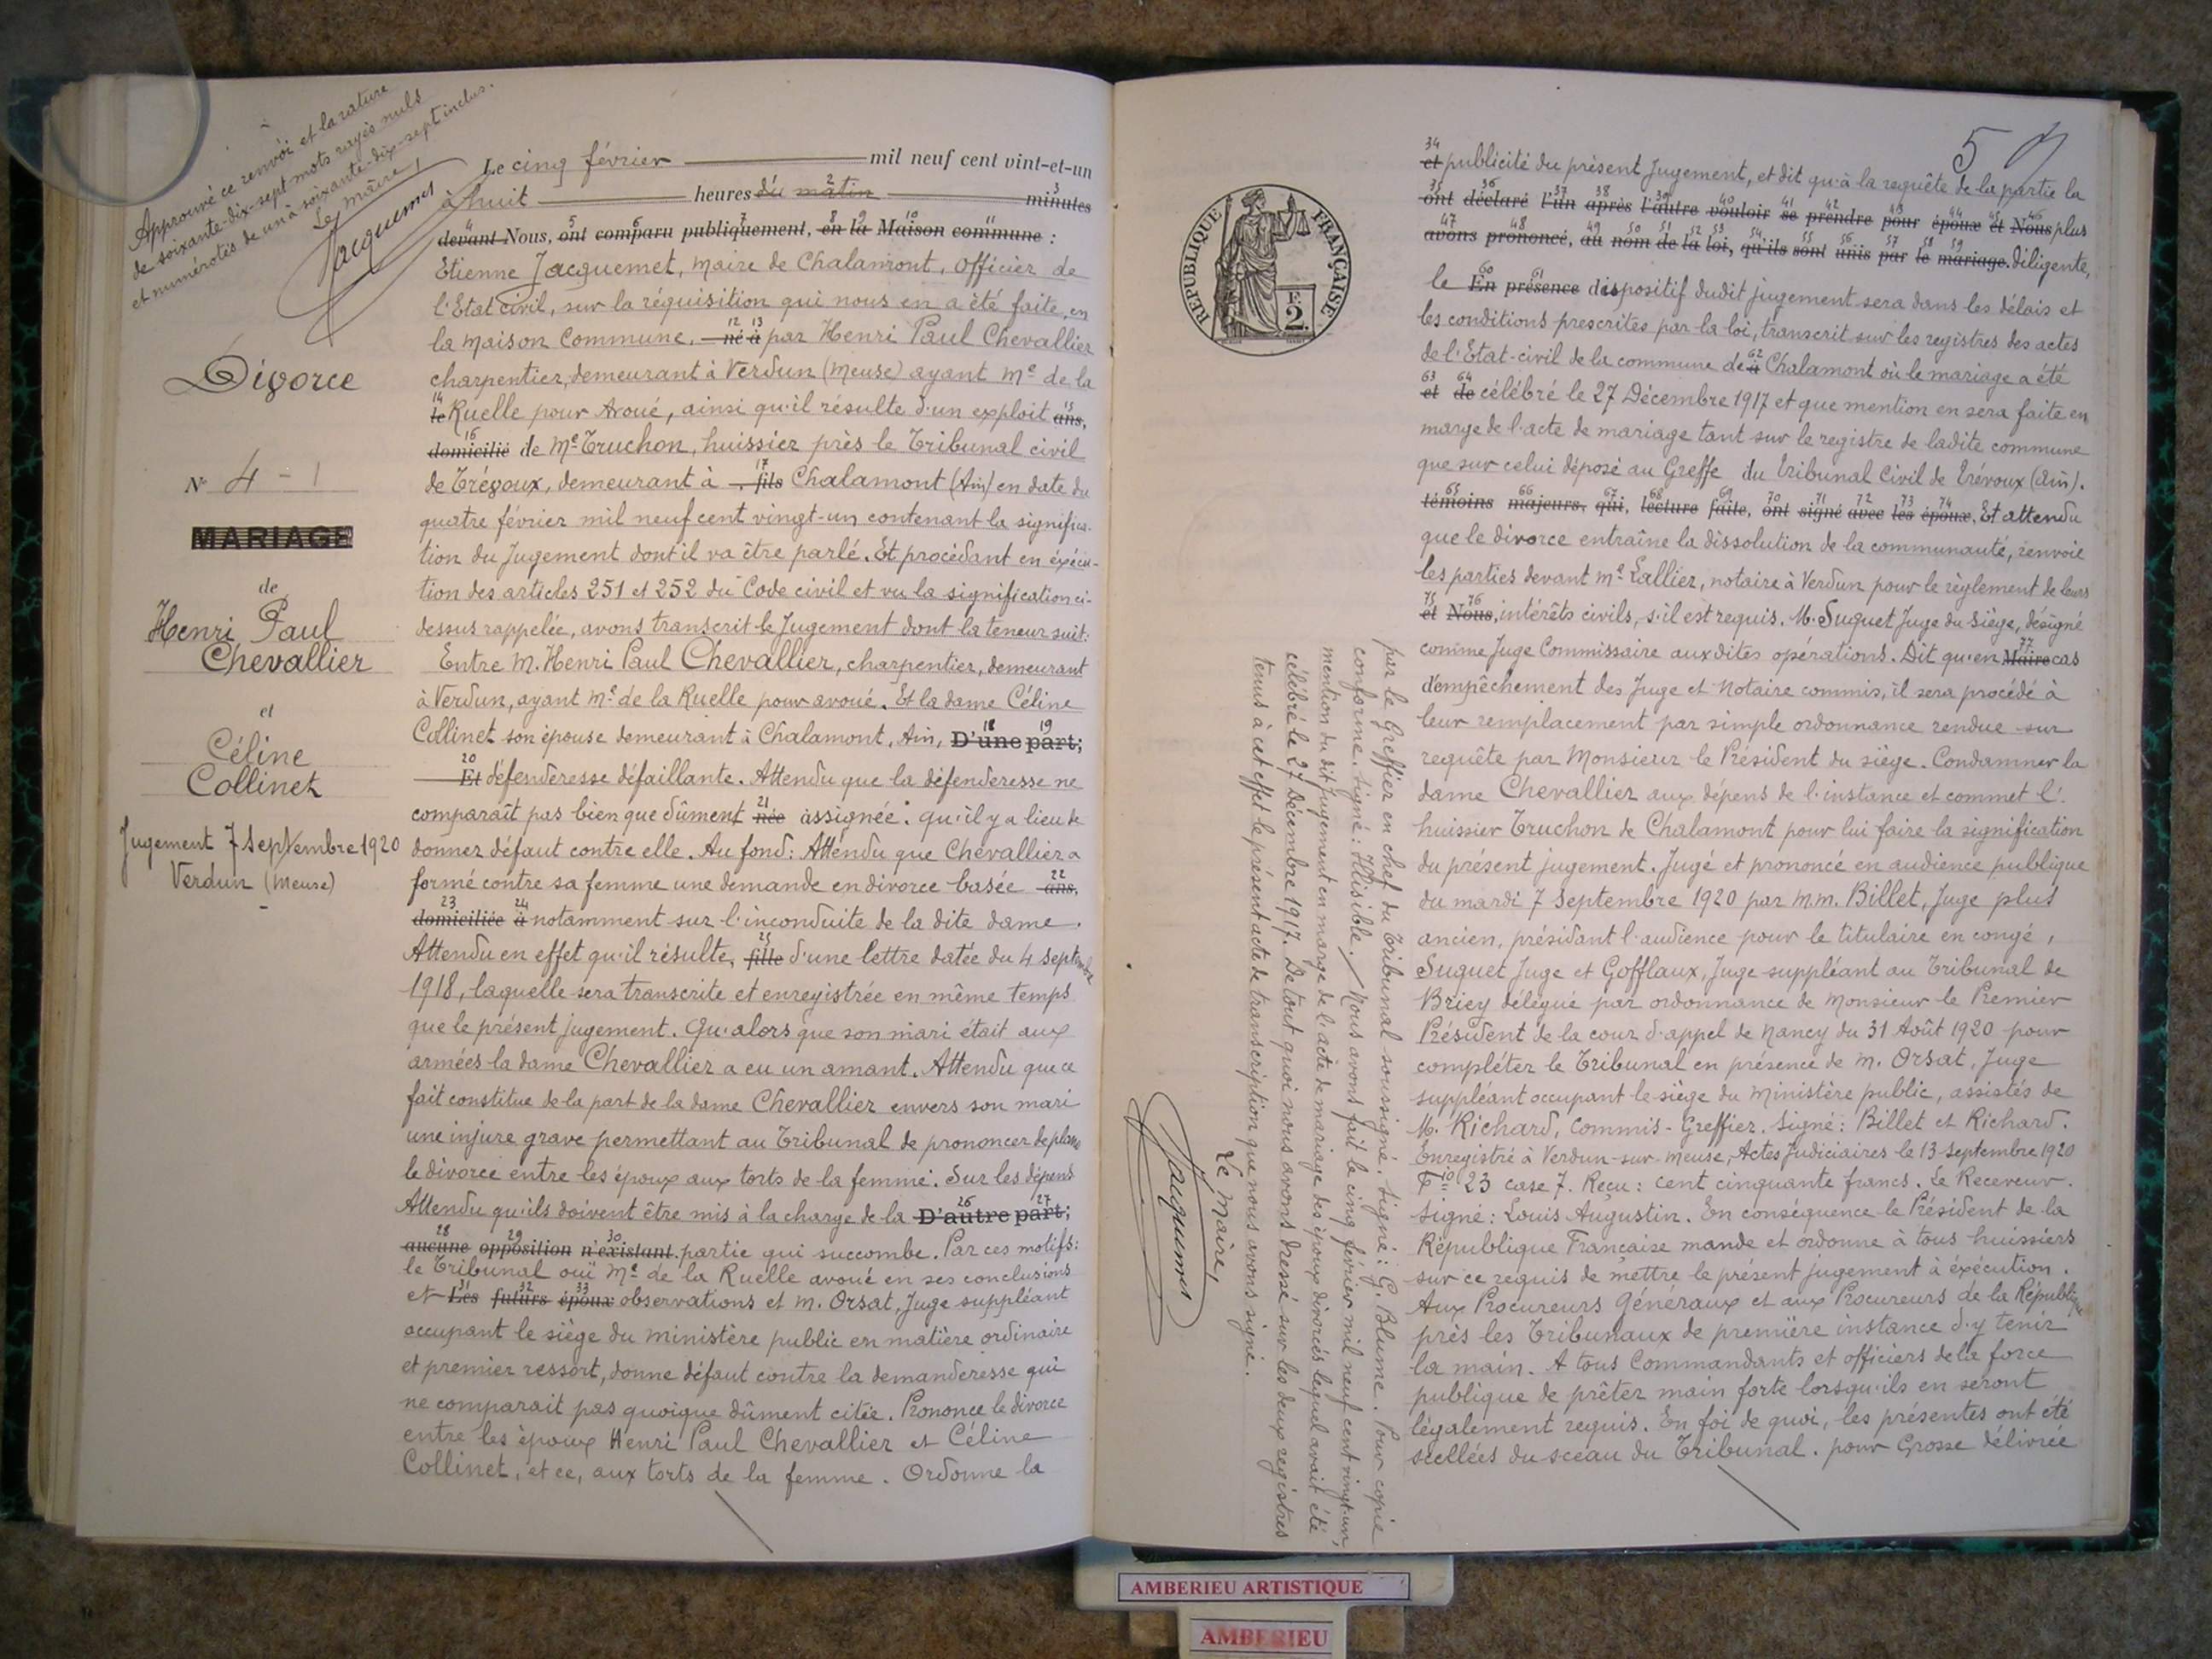 Approuvé ce renvoi et la rature
de soixante-dix-sept mots rayés nuls
et numérotés de un à soixante-dix-sept inclus.
Le Maire,
Jacquemet
Divorce
N° 4 - 1
MARIAGE
de
Henri Paul
Chevallier
et
Céline
Collinet
Jugement 7 Septembre 1920
Verdun (Meuse)
Le cinq février mil neuf cent vint-et-un
à huit heures du matin minutes
devant Nous, ont comparu publiquement, en la Maison commune :
Etienne Jacquemet, Maire de Chalamont, Officier de
l'Etat civil, sur la réquisition qui nous en a été faite, en
la Maison Commune, né à par Henri Paul Chevallier
charpentier, demeurant à Verdun (Meuse) ayant Me de la
le Ruelle pour Avoué, ainsi qu'il résulte d'un exploit ans,
domicilié de Me Truchon, huissier près le Tribunal civil
de Trévoux, demeurant à , fils Chalamont (Ain) en date du
quatre février mil neuf cent vingt-un contenant la significa-
tion du Jugement dont il va être parlé. Et procédant en éxécu-
tion des articles 251 et 252 du Code civil et vu la signification ci-
dessus rappelée, avons transcrit le Jugement dont la teneur suit:
Entre M. Henri Paul Chevallier, charpentier, demeurant
à Verdun, ayant Me de la Ruelle pour avoué. Et la dame Céline
Collinet son épouse demeurant à Chalamont, Ain, D'une part;
Et défenderesse défaillante. Attendu que la défenderesse ne
comparaît pas bien que dûment née assignée: qu'il y a lieu de
donner défaut contre elle. Au fond: Attendu que Chevallier a
formé contre sa femme une demande en divorce basée ans,
domiciliée à notamment sur l'inconduite de la dite dame.
Attendu en effet qu'il résulte, fille d'une lettre datée du 4 Septembre
1918, laquelle sera transcrite et enregistrée en même temps
que le présent jugement. Qu'alors que son mari était aux
armées la dame Chevallier a eu un amant. Attendu que ce
fait constitue de la part de la dame Chevallier envers son mari
une injure grave permettant au Tribunal de prononcer de plano
le divorce entre les époux aux torts de la femme. Sur les dépens
Attendu qu'ils doivent être mis à la charge de la D'autre part;
aucune opposition n'existant. partie qui succombe. Par ces motifs:
le Tribunal ouï Me de la Ruelle avoué en ses conclusions
et Les futurs époux observations et M. Orsat, Juge suppléant
occupant le siège du ministère public en matière ordinaire
et premier ressort, donne défaut contre la demanderesse qui
ne comparait pas quoique dûment citée. Prononce le divorce
entre les époux Henri Paul Chevallier et Céline
Collinet, et ce, aux torts de la femme. Ordonne la
5
RÉPUBLIQUE FRANÇAISE
2 F.
et publicité du présent Jugement, et dit qu'à la requête de la partie la
ont déclaré l'un après l'autre vouloir se prendre pour époux et Nous plus
avons prononcé, au nom de la loi, qu'ils sont unis par le mariage. diligente,
le En présence dispositif dudit jugement sera dans les délais et
les conditions prescrites par la loi, transcrit sur les registres des actes
de l'Etat-civil de la commune de à Chalamont où le mariage a été
et de célébré le 27 Décembre 1917 et que mention en sera faite en
marge de l'acte de mariage tant sur le registre de ladite commune
que sur celui déposé au Greffe du Tribunal Civil de Trévoux (Ain).
témoins majeurs, qui, lecture faite, ont signé avec les époux, Et attendu
que le divorce entraîne la dissolution de la communauté, renvoie
les parties devant Me Lallier, notaire à Verdun pour le règlement de leurs
et Nous, intérêts civils, s'il est requis. M. Suquet Juge du siège, désigné
comme Juge Commissaire auxdites opérations. Dit qu'en Maire cas
d'empêchement des Juge et Notaire commis, il sera procédé à
leur remplacement par simple ordonnance rendue sur
requête par Monsieur le Président du siège. Condamner la
dame Chevallier aux dépens de l'instance et commet l'
huissier Truchon de Chalamont pour lui faire la signification
du présent jugement. Jugé et prononcé en audience publique
du mardi 7 Septembre 1920 par M.M. Billet, Juge plus
ancien, présidant l'audience pour le titulaire en congé,
Suquet Juge et Gofflaux, Juge suppléant au Tribunal de
Briey délégué par ordonnance de Monsieur le Premier
Président de la cour d'appel de Nancy du 31 Août 1920 pour
compléter le Tribunal en présence de M. Orsat, Juge
suppléant occupant le siège du Ministère public, assistés de
M. Richard, Commis-Greffier. Signé: Billet et Richard.
Enregistré à Verdun-sur-Meuse, Actes Judiciaires le 13 Septembre 1920
Fio 23 case 7. Reçu: cent cinquante francs. Le Receveur.
Signé: Louis Augustin. En conséquence le Président de la
République Française mande et ordonne à tous huissiers
sur ce requis de mettre le présent jugement à éxécution.
Aux Procureurs Généraux et aux Procureurs de la République
près les Tribunaux de première instance d'y tenir
la main. A tous Commandants et officiers de la force
publique de prêter main forte lorsqu'ils en seront
légalement requis. En foi de quoi, les présentes ont été
scellées du sceau du Tribunal. pour Grosse délivrée
par le Greffier en chef du Tribunal soussigné. Signé: G. Blume. Pour copie
conforme. Signé: Illisible. / Nous avons fait le cinq février mil neuf cent vingt-un,
mention du dit jugement en marge de l'acte de mariage des époux divorcés lequel avait été
célébré le 27 Décembre 1917. De tout quoi nous avons dressé sur les deux registres
tenus à cet effet le présent acte de transcription que nous avons signé.
Le Maire,
Jacquemet
AMBERIEU ARTISTIQUE
AMBERIEU